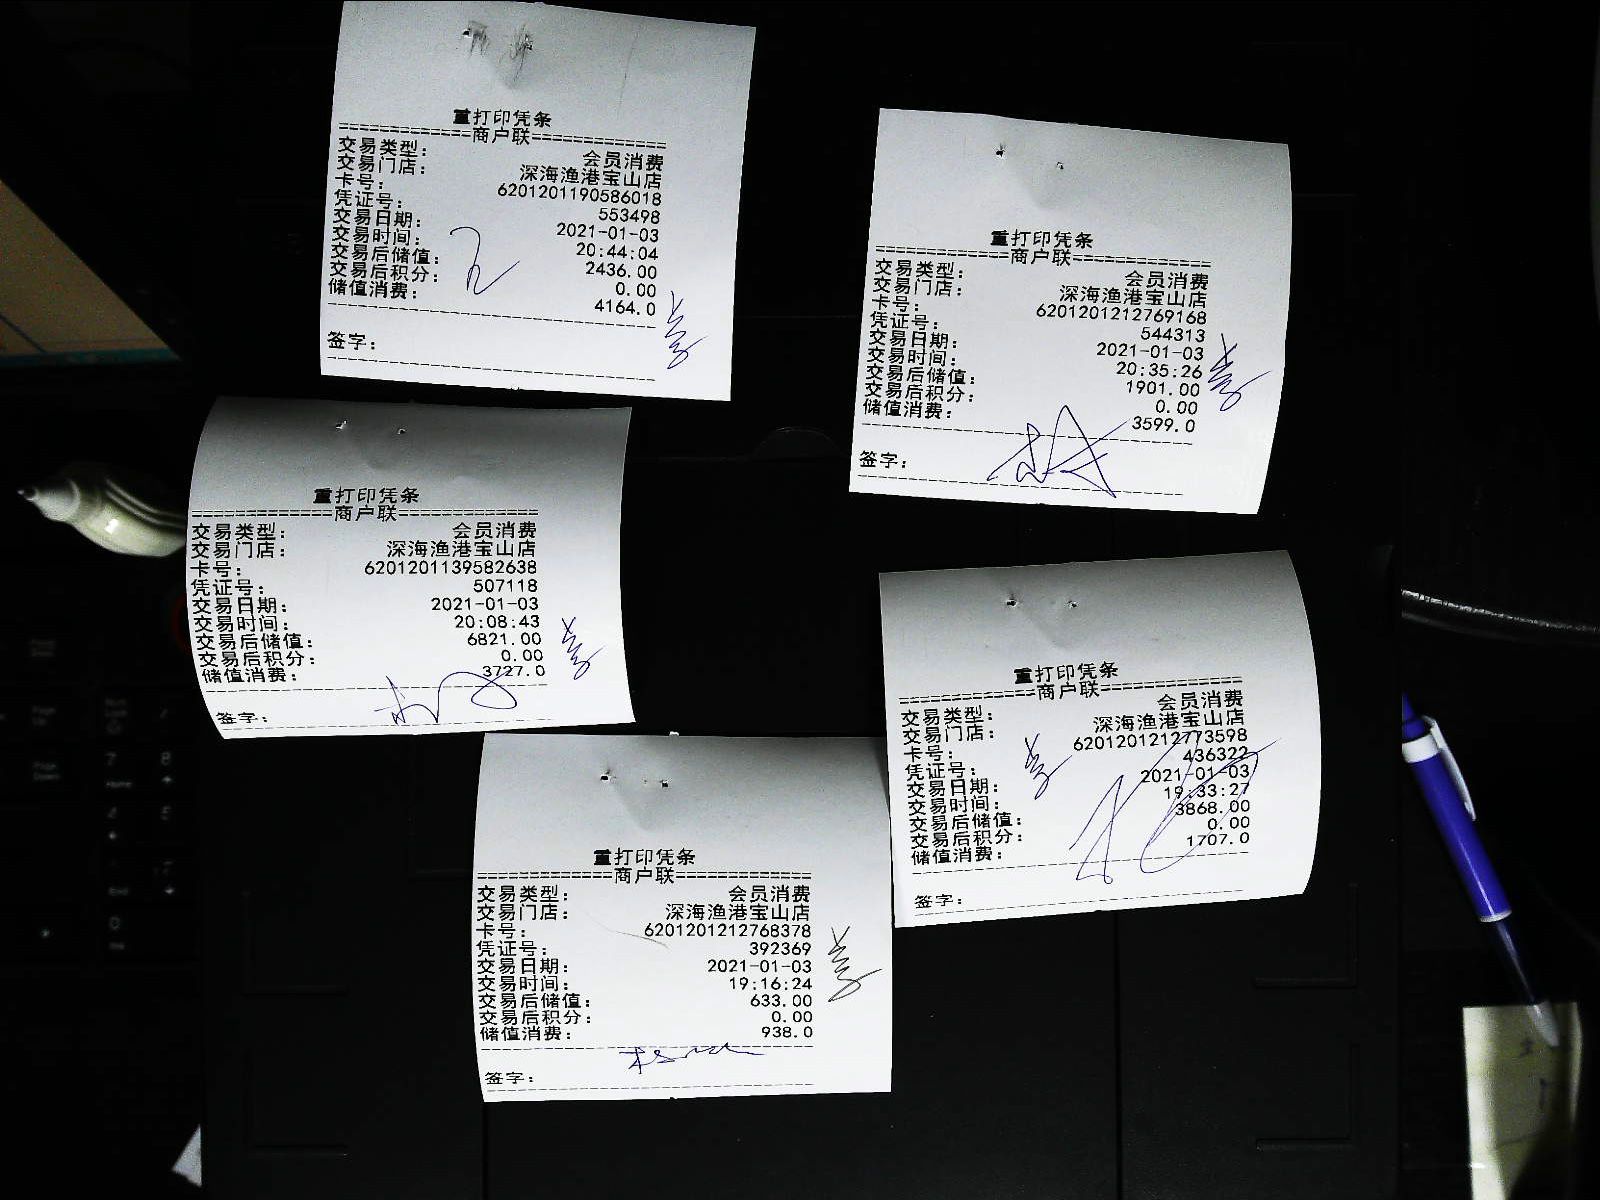 重打印凭条
============商户联============
交易类型: 会员消费
交易门店: 深海渔港宝山店
卡号: 6201201190586018
凭证号: 553498
交易日期: 2021-01-03
交易时间: 20:44:04
交易后储值: 2436.00
交易后积分: 0.00
储值消费: 4164.0
签字:
重打印凭条
============商户联============
交易类型: 会员消费
交易门店: 深海渔港宝山店
卡号: 6201201212769168
凭证号: 544313
交易日期: 2021-01-03
交易时间: 20:35:26
交易后储值: 1901.00
交易后积分: 0.00
储值消费: 3599.0
签字:
重打印凭条
============商户联============
交易类型: 会员消费
交易门店: 深海渔港宝山店
卡号: 6201201139582638
凭证号: 507118
交易日期: 2021-01-03
交易时间: 20:08:43
交易后储值: 6821.00
交易后积分: 0.00
储值消费: 3727.0
签字:
重打印凭条
============商户联============
交易类型: 会员消费
交易门店: 深海渔港宝山店
卡号: 6201201212773598
凭证号: 436322
交易日期: 2021-01-03
交易时间: 19:33:27
交易后储值: 3868.00
交易后积分: 0.00
储值消费: 1707.0
签字:
重打印凭条
============商户联============
交易类型: 会员消费
交易门店: 深海渔港宝山店
卡号: 6201201212768378
凭证号: 392369
交易日期: 2021-01-03
交易时间: 19:16:24
交易后储值: 633.00
交易后积分: 0.00
储值消费: 938.0
签字: